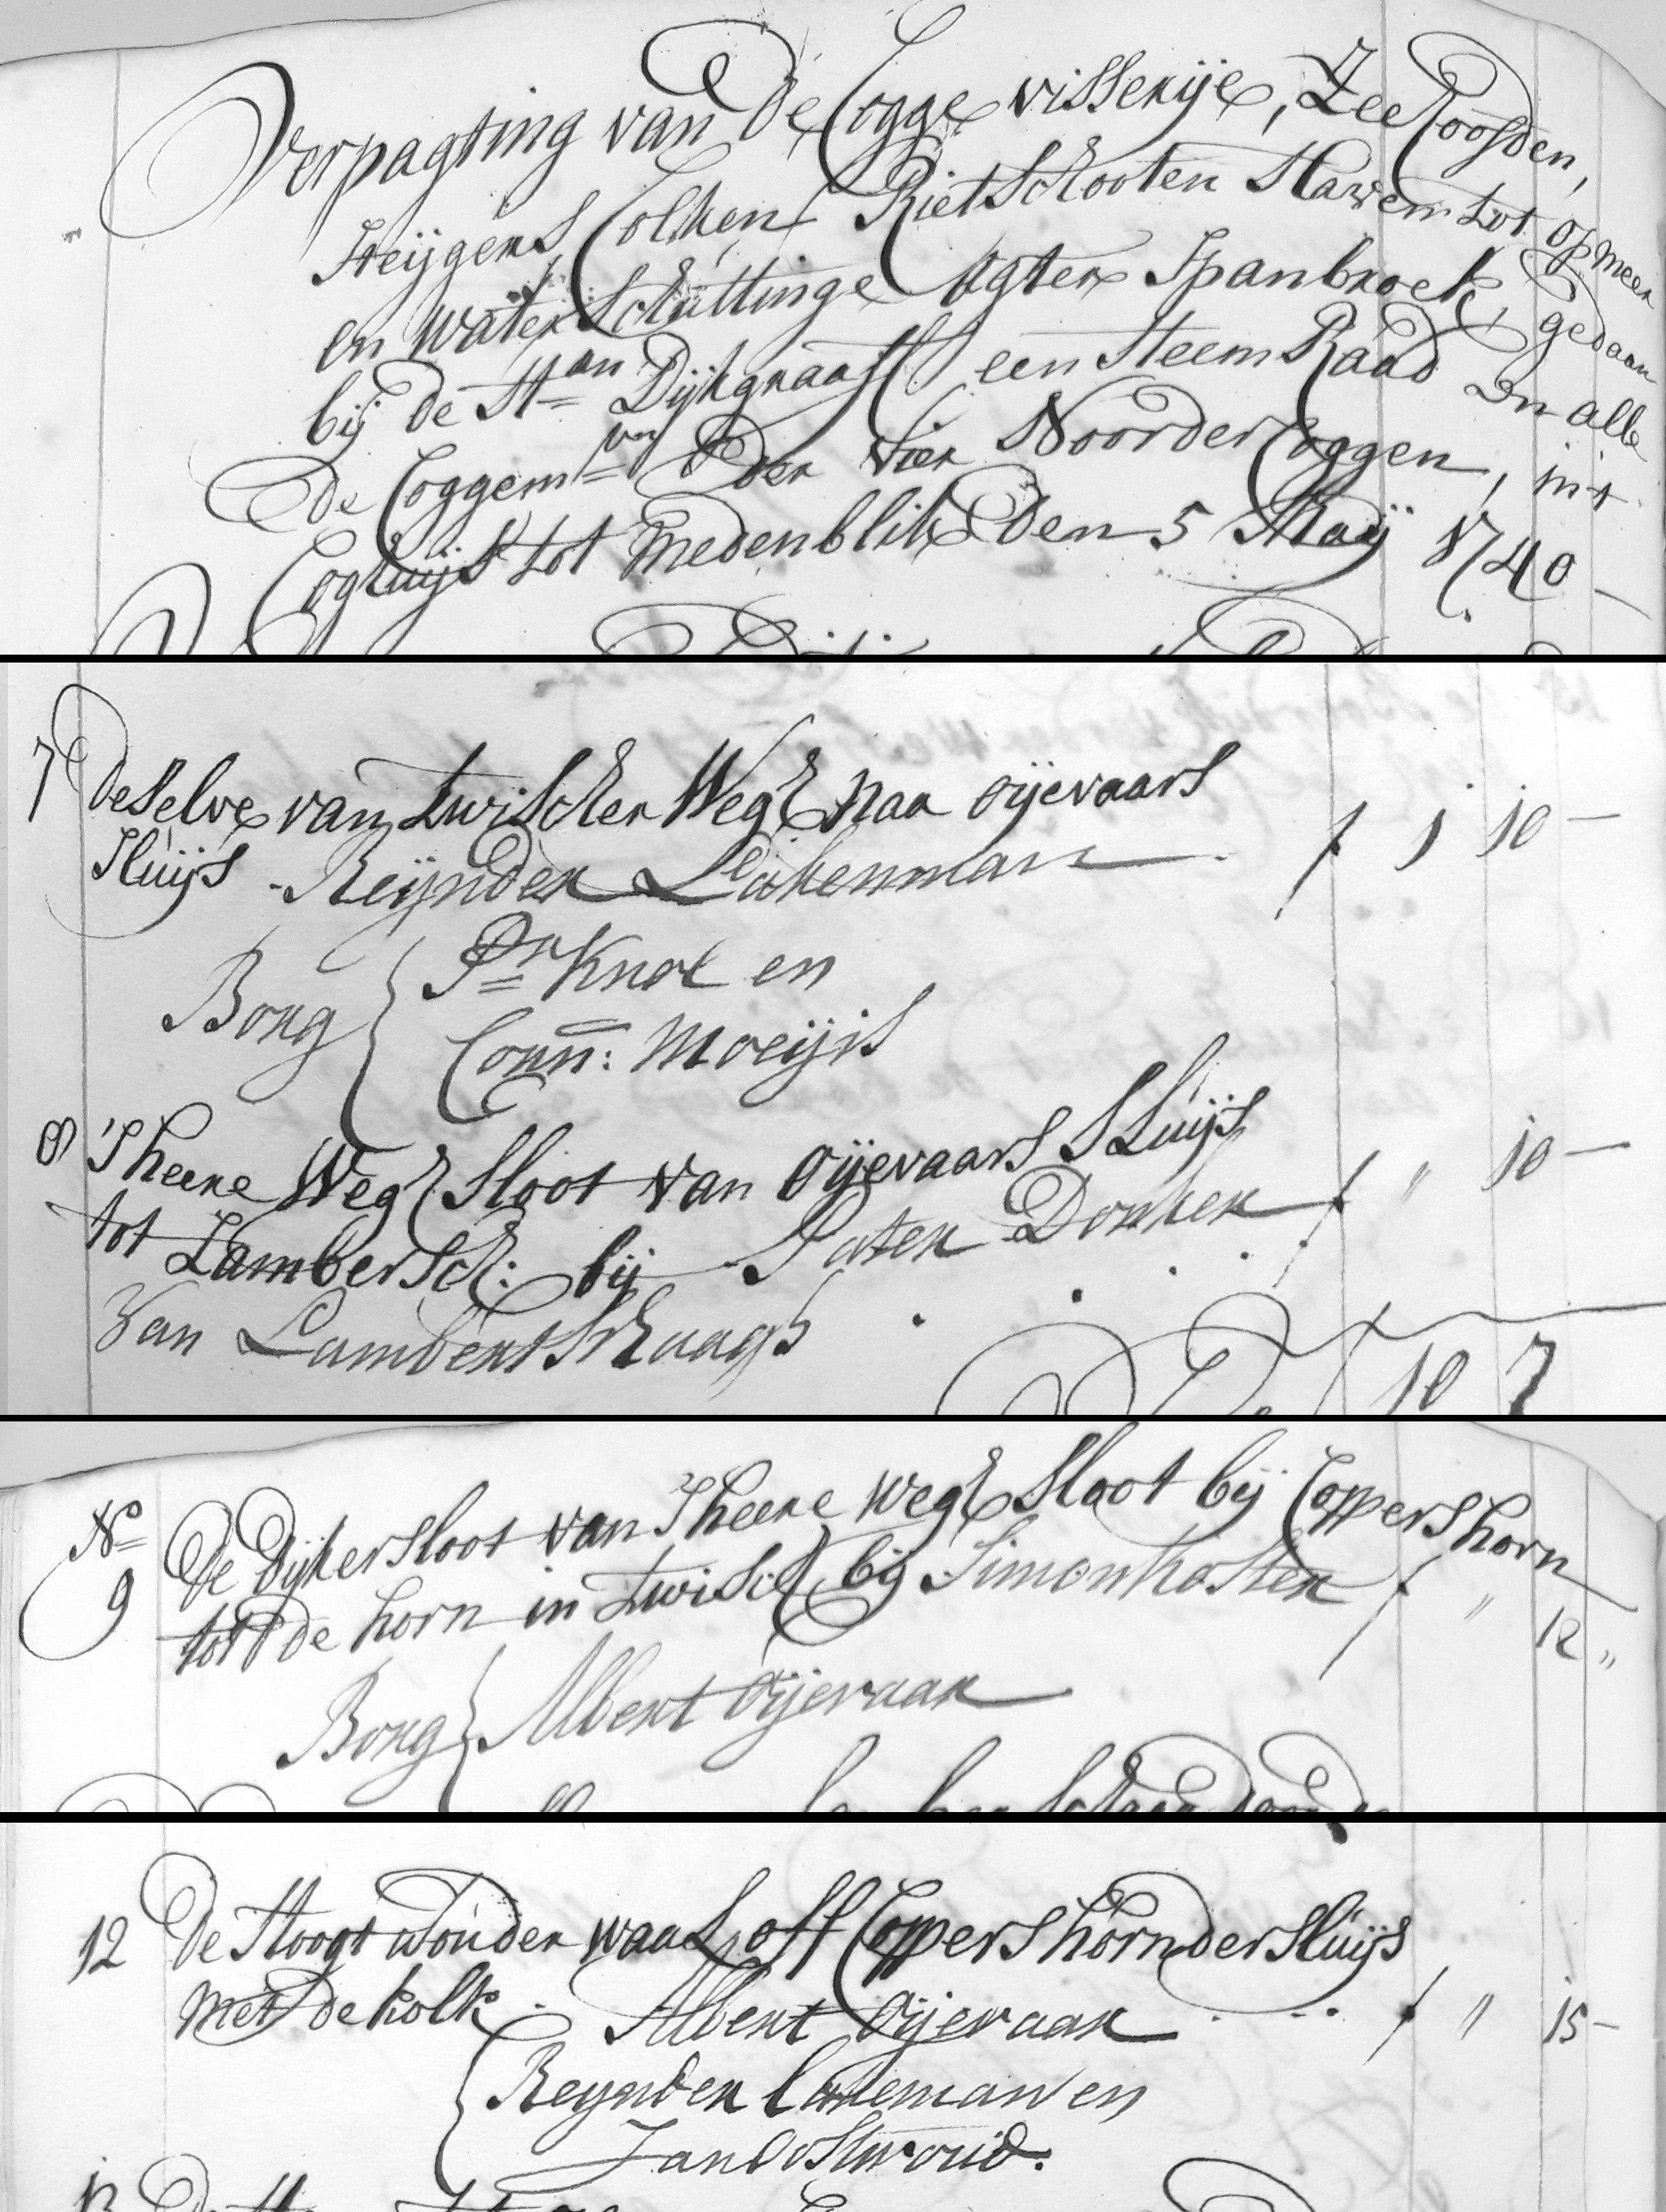 Verpagting van de Cogge visserije, Zee Hoofden,
Steijgers Colken Rietschooten Haven tot Opmeer
en Waterschuttinge Agter Spanbroek, gedaan
bij de Hren Dijkgraaff een Heem Raad En alle
de Coggemrs van Der Vier Noorder Coggen, int
Coghuijs tot Medenblik Den 5 Maij 1740 —
7 deselve van twischer Weg Naa Oijevaars
Sluijs - Reijnder Lakenman — f 1 10 —
Borg { Pr Knol en
Corn: Moeijis
8 'S heere Weg Sloot van Oijevaars Sluijs
tot Lambersch: bij - Pater Donker f " 10 —
Van Lambertschaags
f 10 7
No 9 De Dijkersloot van S heere Weg Sloot bij Coppershorn
tot de horn in twisch bij Simon Koster f " 12 "
Borg { Albert Oijevaar
12 De Hoogtwouder waal off Coppershornder Sluijs
met de kolk - Albert Oijevaar f " 15 —
{ Reijnder Lakeman en
Jan Oostwoud.
13